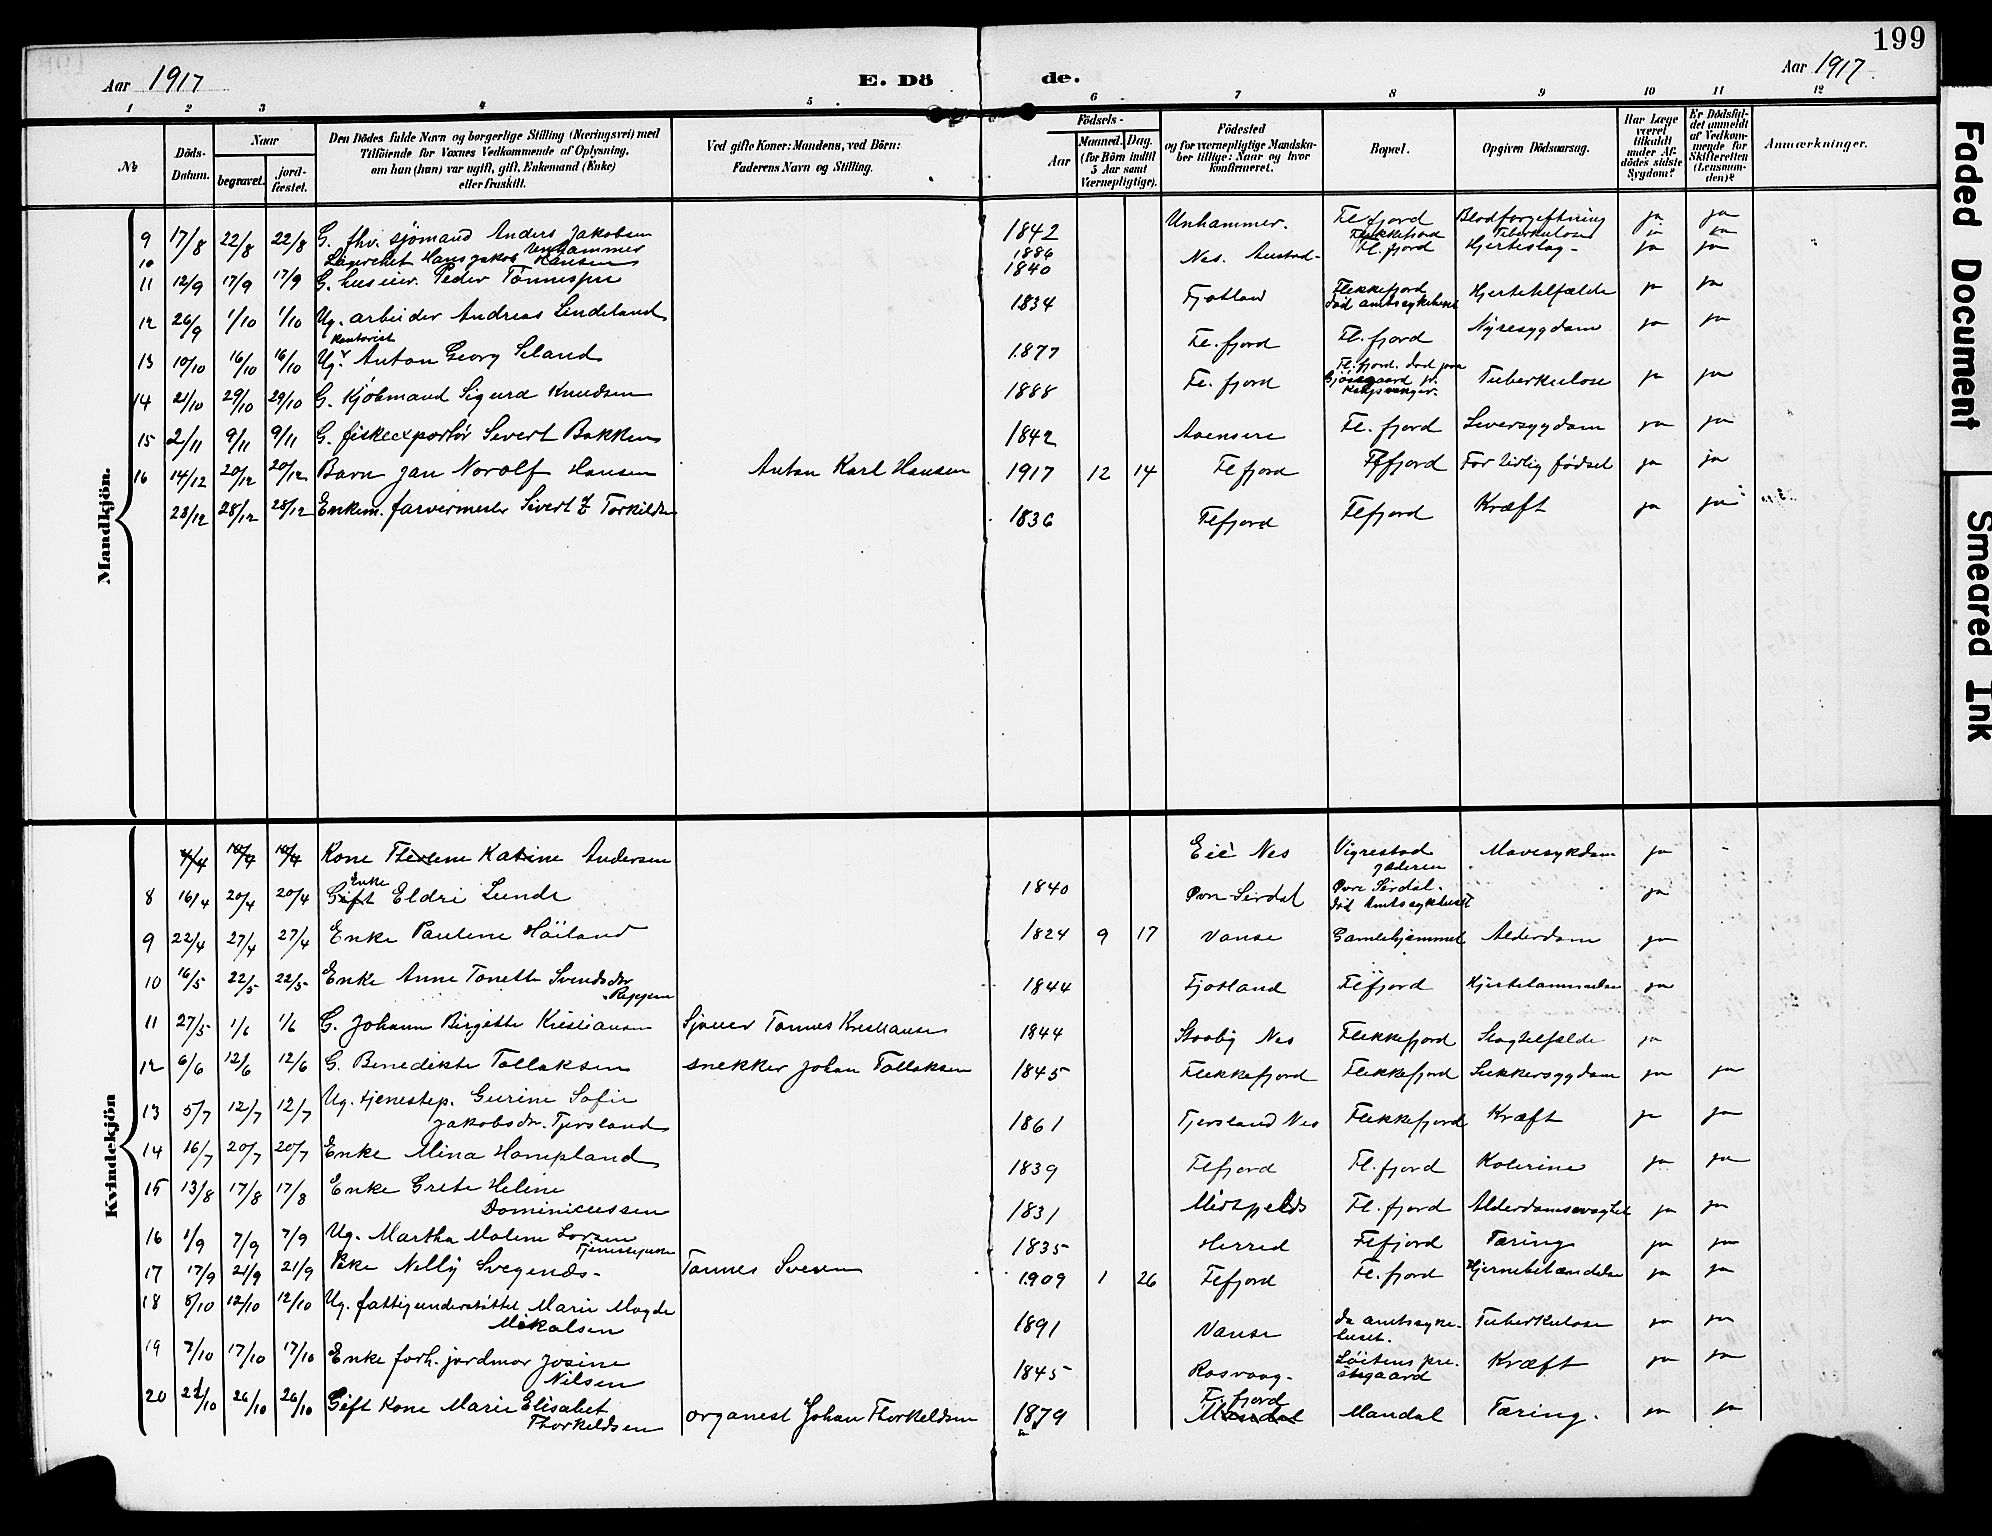 199
Aar 1917
E. Dö de.
Aar 1917
1 2 3 4 5 6 7 8 9 10 11 12
№
Döds-Datum.
Naar
begravet.
jord-fæstet.
Den Dödes fulde Navn og borgerlige Stilling (Næringsvei) med
Tilföiende for Voxnes Vedkommende af Oplysning,
om han (hun) var ugift, gift, Enkemand (Enke)
eller fraskilt.
Ved gifte Koner: Mandens, ved Börn:
Faderens Navn og Stilling.
Födsels-
Aar
Maaned. Dag.
(for Börn indtil
5 Aar samt
Værnepligtige).
Födested
og for værnepligtige Mandska-
ber tillige: Naar og hvor
konfirmeret.
Bopæl.
Opgiven Dödsaarsag.
Har Læge
været
tilkaldt
under Af-
dödes sidste
Sygdom?
Er Dödsfal-
det anmeldt
af Vedkom-
mende for
Skifteretten
(Lensman-
den)?
Anmærkninger.
Mandkjön.
9 17/8 22/8 22/8 G. fhv. sjömand Anders Jakobsen Unhammer 1842 Unhammer. Fl.fjord Blodforgiftning ja ja
10 Hans Jakob Hansen 1886 Flekkefjord Tuberkulose ja ja
1840 Nes. Fl.fjord Hjerteslag - ja ja
11 12/9 17/9 17/9 G. huseier Peder Tönnessen 1834 Fjotland Flekkefjord
död amtsykehuset Hjertetilfælde ja ja
12 26/9 1/10 1/10 Ug. arbeider Andreas Lindeland
Fl.fjord Fl.fjord Nyresygdom ja ja
13 10/10 16/10 16/10 Ug. kontorist Anton Georg Seland 1877
Fl.fjord Fl.fjord. död paa
Kongsvinger. Tuberkulose ja ja
14 21/10 29/10 29/10 G. Kjöbmand Sigurd Knudsen 1888
15 2/11 9/11 9/11 G. fiskeexportör Sivert Bakken 1842 Fl.fjord Leversygdom ja ja
16 14/12 20/12 20/12 Barn Jan Norolf Hansen Anton Karl Hansen 1917 12 14 Flefjord Flfjord For tidlig födsel ja ja
23/12 28/12 28/12 Enkem. farvermester Sivert Z Torkildsen 1836 Flfjord Flfjord Kræft ja ja
Kvindekjön
4/4 10/4 10/4 Kone Therene Katrine Andersen Eie Nes Vigrestad
Jæderen Mavesykdom ja
8 16/4 20/4 20/4 Gift Enke Eldri Lunde 1840 Övre Sirdal Övre Sirdal.
död Amtssykehuset ja
9 22/4 27/4 27/4 Enke Pauline Höiland 1824 9 17 Vanse Gamlehjemmet Alderdom ja
10 16/5 22/5 22/5 Enke Anne Tonette Svendsdr.
1844 Fjotland Flfjord Hjertelammelse ja
11 27/5 1/6 1/6 G. Johanne Birgitte Kristiansen Tönnes Kristiansen 1844 Nes Flekkefjord Slagtilfælde ja
12 6/6 12/6 12/6 G. Benedikte Tollaksen snekker Johan Tollaksen 1845 Flekkefjord Flekkefjord Sukkersygdom ja ja
13 5/7 12/7 12/7 Ug. tjenestep. Gurine Sofie
Jakobsdr. Tjorsland 1861 Tjorsland Nes Flekkefjord Kræft ja ja
14 16/7 20/7 20/7 Enke Mina Hompland 1839 Flfjord Fl.fjord Kolerine ja ja
15 13/8 17/8 17/8 Enke Grete Helene
Dominicussen 1831 Fl.fjord Alderdomssvaghet ja ja
16 1/9 7/9 7/9 Ug. Martha Malene Larsen
Tjenestepike 1835 Herred Flfjord Tæring ja ja
17 17/9 21/9 21/9 Pike Nelly Svegends- Tönnes 1909 1 26 Flfjord Fl.fjord Hjernebetændelse ja ja
18 8/10 12/10 12/10 Ug. fattigunderstöttet Marie Magda
Mikalsen 1891 Vanse da amtssyke-
huset. Tuberkulose ja ja
19 7/10 17/10 17/10 Enke forh. jordmor Josine
Nilsen 1845 Rosvaag. Löitens pre-
stegaard Kræft ja ja
20 22/10 26/10 26/10 Gift Kone Marie Elisabet
Thorkeldsen organist Johan Thorkeldsen 1879 Fl.fjord
Mandal Mandal Tæring. ja ja
Faded Document
Smeared Ink